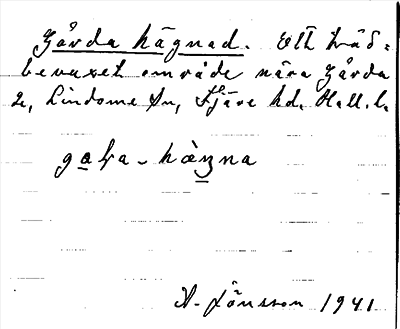 Gårda hägnad. Ett träd-
bevuxet område nära Gårda
2, Lindome sn, Fjäre hd. Hall. l.
Jönsson 1941